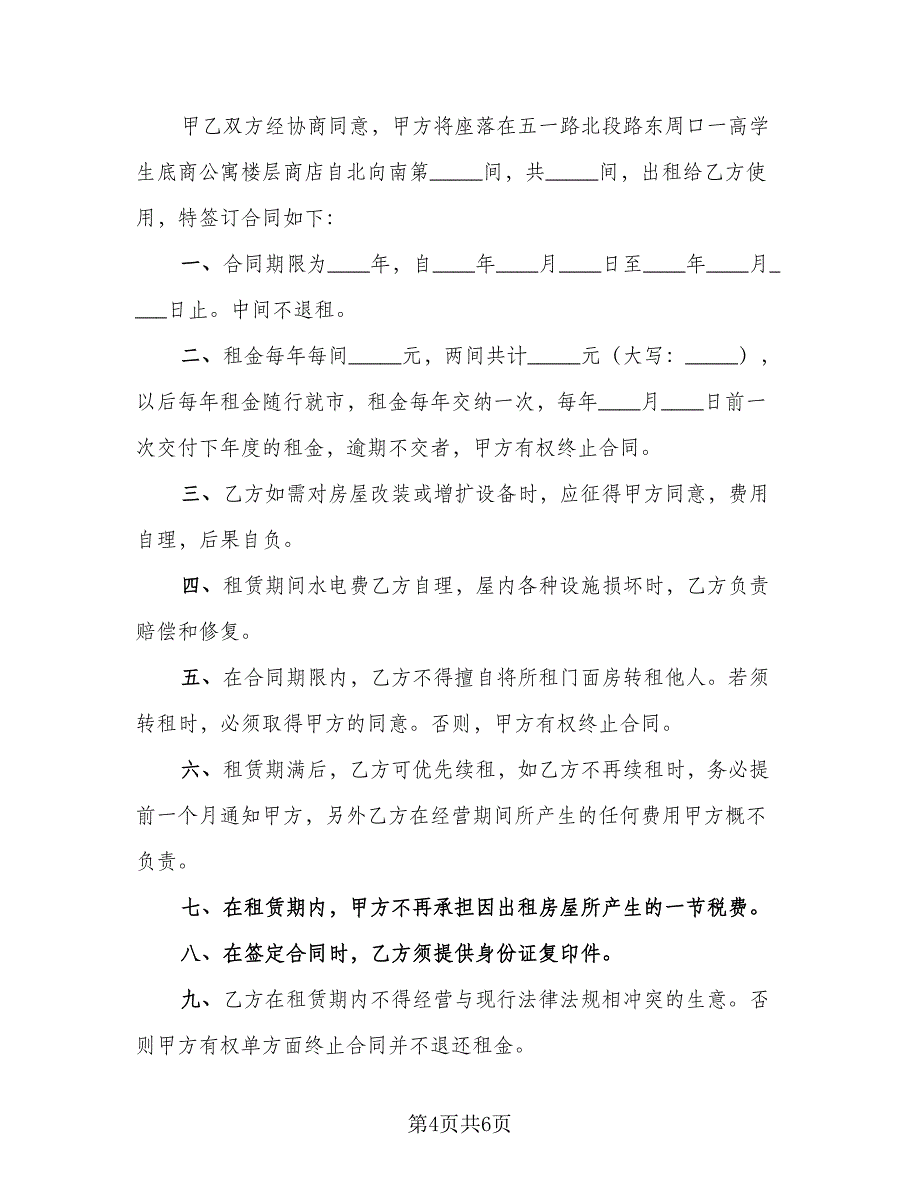 甲乙双方经协商同意，甲方将座落在五一路北段路东周口一高学
生底商公寓楼层商店自北向南第_____间，共_____间，出租给乙方使
用，特签订合同如下：
一、合同期限为____年，自____年____月____日至____年____月_
___日止。中间不退租。
二、租金每年每间_____元，两间共计_____元（大写：_____），
以后每年租金随行就市，租金每年交纳一次，每年____月____日前一
次交付下年度的租金，逾期不交者，甲方有权终止合同。
三、乙方如需对房屋改装或增扩设备时，应征得甲方同意，费用
自理，后果自负。
四、租赁期间水电费乙方自理，屋内各种设施损坏时，乙方负责
赔偿和修复。
五、在合同期限内，乙方不得擅自将所租门面房转租他人。若须
转租时，必须取得甲方的同意。否则，甲方有权终止合同。
六、租赁期满后，乙方可优先续租，如乙方不再续租时，务必提
前一个月通知甲方，另外乙方在经营期间所产生的任何费用甲方概不
负责。
七、在租赁期内，甲方不再承担因出租房屋所产生的一节税费。
八、在签定合同时，乙方须提供身份证复印件。
九、乙方在租赁期内不得经营与现行法律法规相冲突的生意。否
则甲方有权单方面终止合同并不退还租金。
第4页共6页